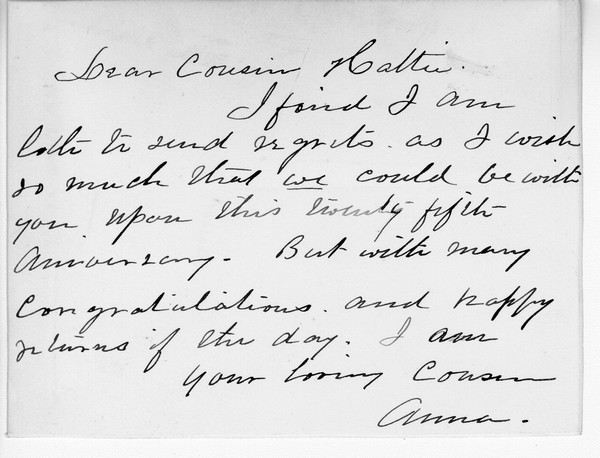 Dear Cousin Hattie.
I find I am
loth to send regrets. as I wish
so much that we could be with
you upon this twenty fifth
Anniversary. But with many
Congratulations. and happy
returns of the day. I am
your loving Cousin
Anna.